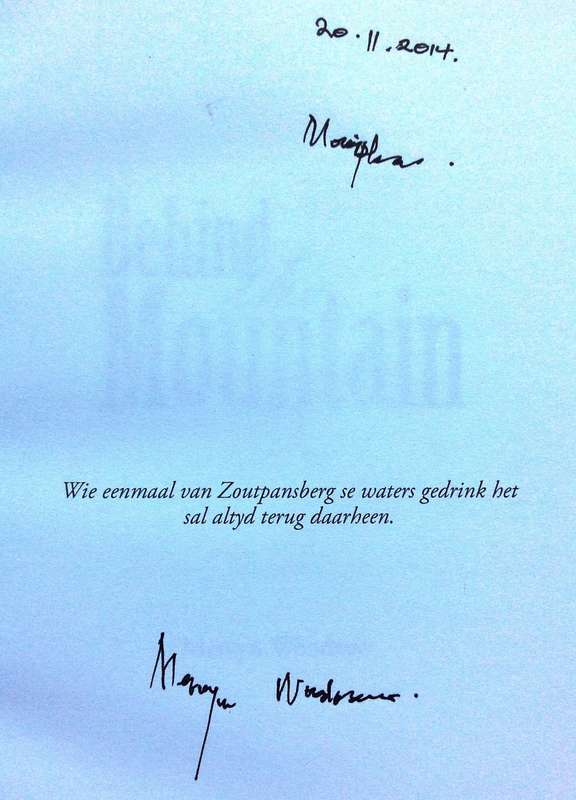 20.11.2014.
Mooiplaas.
Behind
Mountain
Wie eenmaal van Zoutpansberg se waters gedrink het
sal altyd terug daarheen.
Mervyn